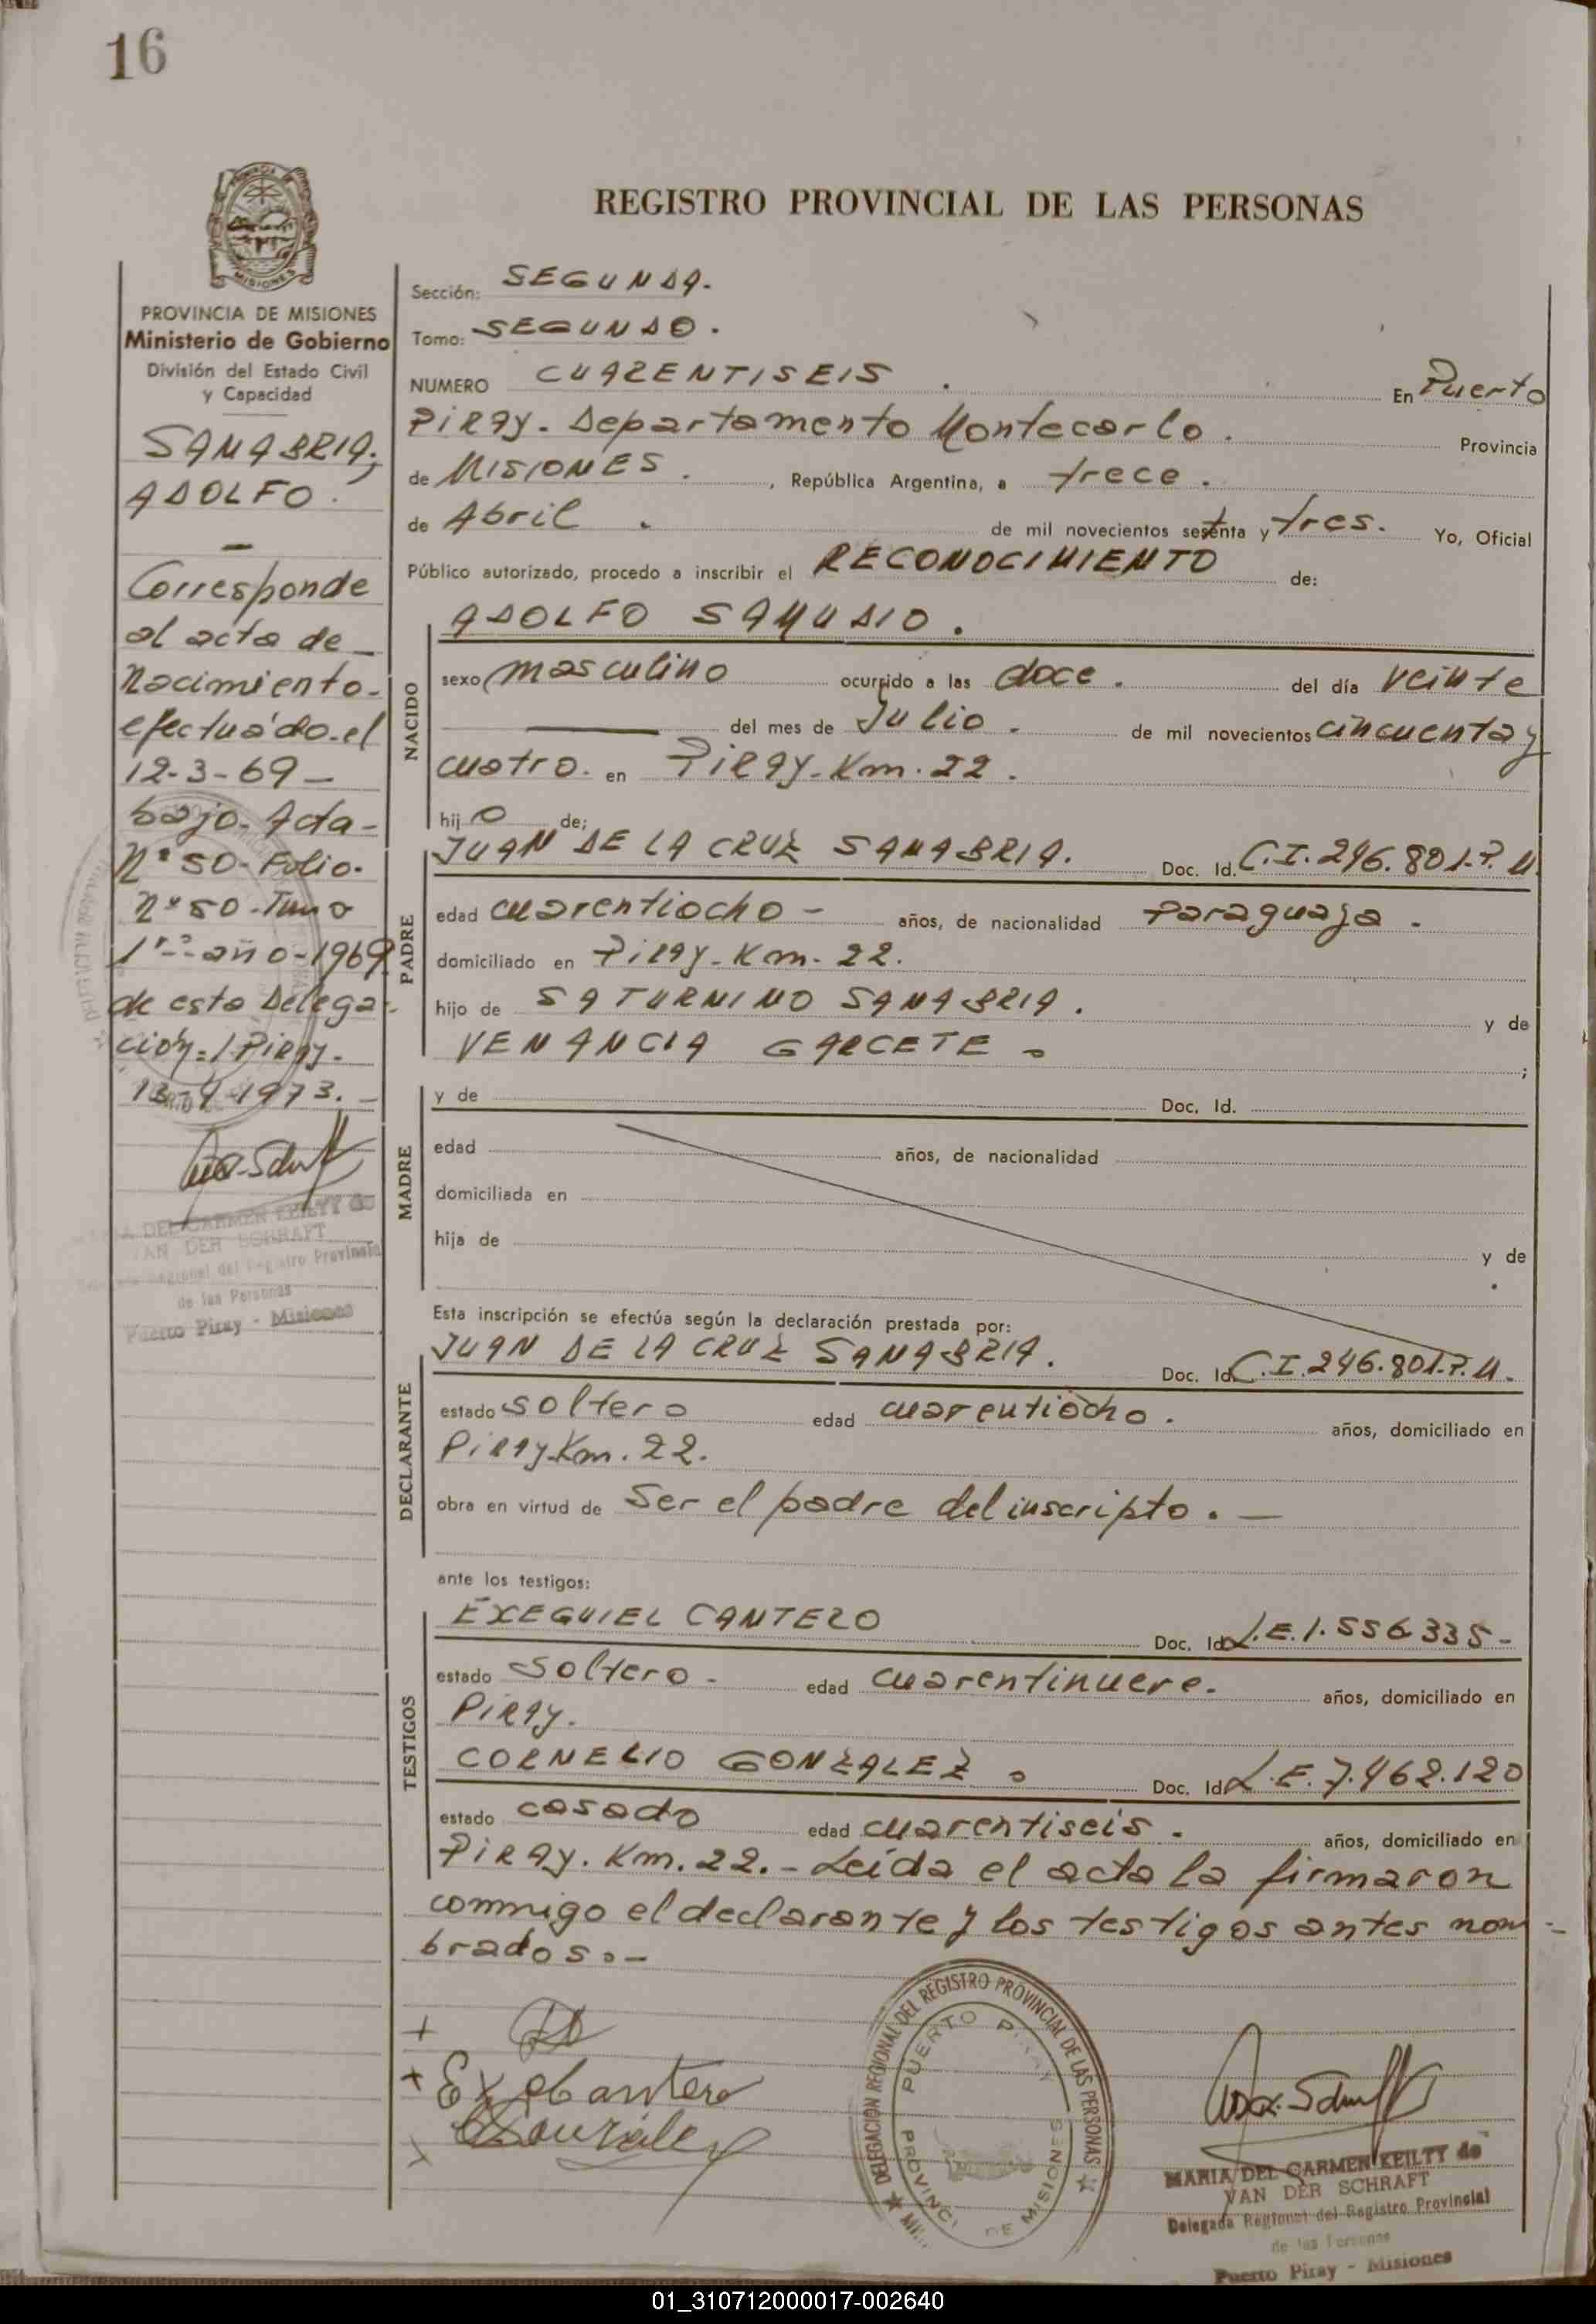 16
REGISTRO PROVINCIAL DE LAS PERSONAS
MISIONES
PROVINCIA DE MISIONES
Ministerio de Gobierno
División del Estado Civil
y Capacidad
SANABRIA,
ADOLFO.
Corresponde
al acta de
nacimiento.
efectuádo.el
12-3-69-
bajo. Acta-
Nº 50-Folio.
nº 50-Tomo
1ro-año-1969
de esta Delega-
ción=/Piray.
13-4-1973.-
DEL CARMEN KEILTY de
VAN DER SCHRAFT
Regional del Registro Provincial
de las Personas
Puerto Piray - Misiones
Sección: SEGUNDA.
Tomo: SEGUNDO.
NUMERO CUARENTISEIS. En Puerto
Piray. Departamento Montecarlo. Provincia
de MISIONES., República Argentina, a trece.
de Abril. de mil novecientos setenta y tres. Yo, Oficial
Público autorizado, procedo a inscribir el RECONOCIMIENTO de:
NACIDO
ADOLFO SAMUDIO.
sexo masculino ocurrido a las doce. del día veinte
del mes de Julio. de mil novecientos cincuenta y
cuatro. en Piray-Km.22.
hijo de;
PADRE
JUAN DE LA CRUZ SANABRIA. Doc. Id. C.I.246.801.P.M.
edad cuarentiocho- años, de nacionalidad Paraguaya.
domiciliado en Piray-Km-22.
hijo de SATURNINO SANABRIA. y de
VENANCIA GARCETE.;
MADRE
y de Doc. Id.
edad años, de nacionalidad
domiciliada en
hija de y de
Esta inscripción se efectúa según la declaración prestada por:
DECLARANTE
JUAN DE LA CRUZ SANABRIA. Doc. Id. C.I.246.801.P.M.
estado soltero edad cuarentiocho. años, domiciliado en
Piray-Km.22.
obra en virtud de Ser el padre del inscripto.-
ante los testigos:
TESTIGOS
EXEQUIEL CANTERO Doc. Id. L.E.1.556.335-
estado soltero- edad cuarentinueve. años, domiciliado en
Piray.
CORNELIO GONZALEZ. Doc. Id. L.E.7.462.120
estado casado edad cuarentiseis. años, domiciliado en
Piray. Km.22.-Leída el acta la firmaron
conmigo el declarante y los testigos antes nom-
brados.-
DELEGACION REGIONAL DEL REGISTRO PROVINCIAL DE LAS PERSONAS
PUERTO PIRAY
DE MISIONES
MARIA DEL CARMEN KEILTY de
VAN DER SCHRAFT
Delegada Regional del Registro Provincial
de las Personas
Puerto Piray - Misiones
01_310712000017-002640